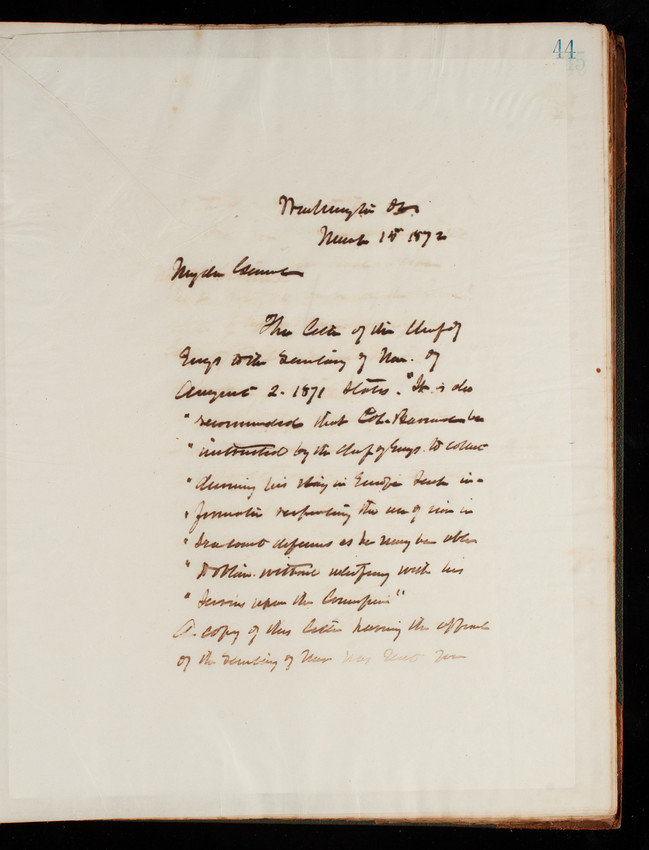 44
45
Washington DC.
March 15th 1872
My dear General
The letter of the Chief of
Engrs to the Secretary of War of
August 2. 1871 states. "It is also
" recommended that Col. Barnard be
" instructed by the Chief of Engrs. to collect
" during his stay in Europe such in-
" formation respecting the use of iron in
" Seacoast defenses as he may be able
" to obtain without interfering with his
" service upon the Commission"
A copy of this letter having the approval
of the Secretary of War was sent you